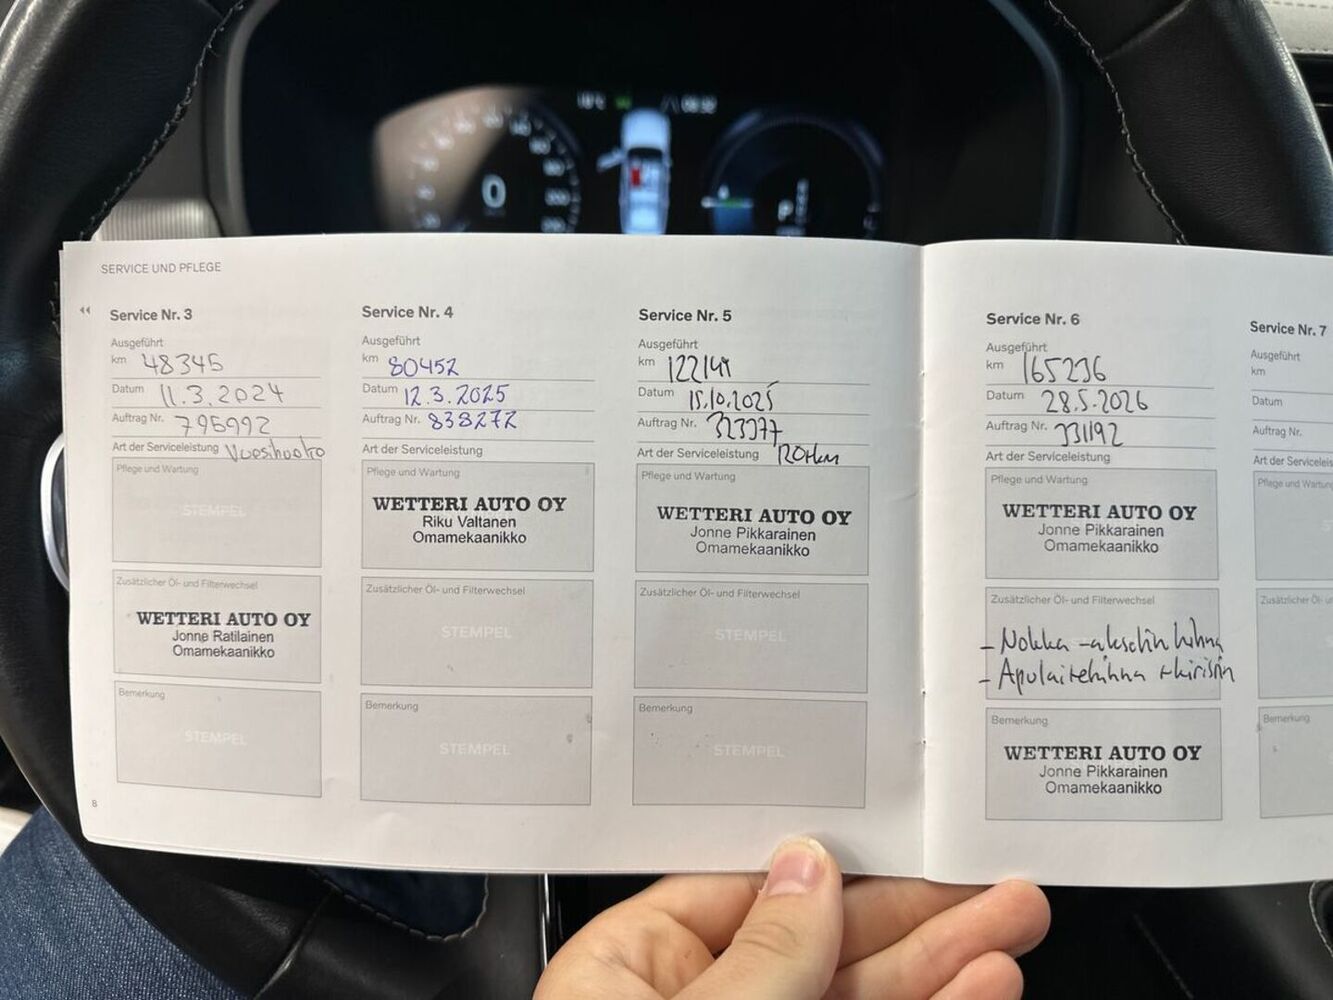 0
P
SERVICE UND PFLEGE
Service Nr. 3
Ausgeführt
km 48345
Datum 11.3.2024
Auftrag Nr. 795992
Art der Serviceleistung Vuosihuolto
Pflege und Wartung
STEMPEL
Zusätzlicher Öl- und Filterwechsel
WETTERI AUTO OY
Jonne Ratilainen
Omamekaanikko
Bemerkung
STEMPEL
8
Service Nr. 4
Ausgeführt
km 80452
Datum 12.3.2025
Auftrag Nr. 838272
Art der Serviceleistung
Pflege und Wartung
WETTERI AUTO OY
Riku Valtanen
Omamekaanikko
Zusätzlicher Öl- und Filterwechsel
STEMPEL
Bemerkung
STEMPEL
Service Nr. 5
Ausgeführt
km
Datum 15.10.2025
Auftrag Nr. 323977
Art der Serviceleistung
Pflege und Wartung
WETTERI AUTO OY
Jonne Pikkarainen
Omamekaanikko
Zusätzlicher Öl- und Filterwechsel
STEMPEL
Bemerkung
STEMPEL
Service Nr. 6
Ausgeführt
km 165236
Datum 28.5.2026
Auftrag Nr. 331192
Art der Serviceleistung
Pflege und Wartung
WETTERI AUTO OY
Jonne Pikkarainen
Omamekaanikko
Zusätzlicher Öl- und Filterwechsel
- Nokka-akselin hihna
- Apulaitehihna + kiristin
Bemerkung
WETTERI AUTO OY
Jonne Pikkarainen
Omamekaanikko
Service Nr. 7
Ausgeführt
km
Datum
Auftrag Nr.
Art der Serviceleis
Pflege und Wartung
Zusätzlicher Öl- u
Bemerkung